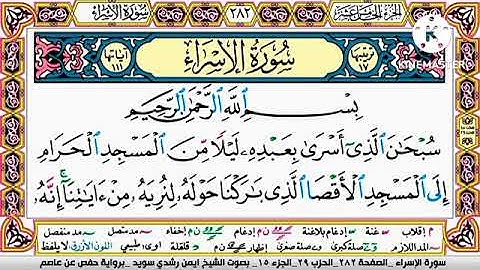 الجزء الخامس عشر
٢٨٢
سورة الإسراء
KINEMASTER
ترتيبها ١٧
سُورَةُ الْإِسْرَاءِ
آياتها ١١١
بِسْمِ اللَّهِ الرَّحْمَٰنِ الرَّحِيمِ
سُبْحَانَ الَّذِي أَسْرَىٰ بِعَبْدِهِ لَيْلًا مِّنَ الْمَسْجِدِ الْحَرَامِ
إِلَى الْمَسْجِدِ الْأَقْصَا الَّذِي بَارَكْنَا حَوْلَهُ لِنُرِيَهُ مِنْ ءَايَاتِنَا إِنَّهُ
م إقلاب غنة إدغام بلاغنة ن م إدغام ن م إخفاء مد متصل مد منفصل
المد اللازم صلة كبرى صلة صغرى إظهار ن م قلقلة طبيعي اللون الأزرق لا يلفظ
سورة الإسراء _ الصفحة ٢٨٢_ الحزب ٢٩_ الجزء ١٥ _ بصوت الشيخ ايمن رشدي سويد _ برواية حفص عن عاصم